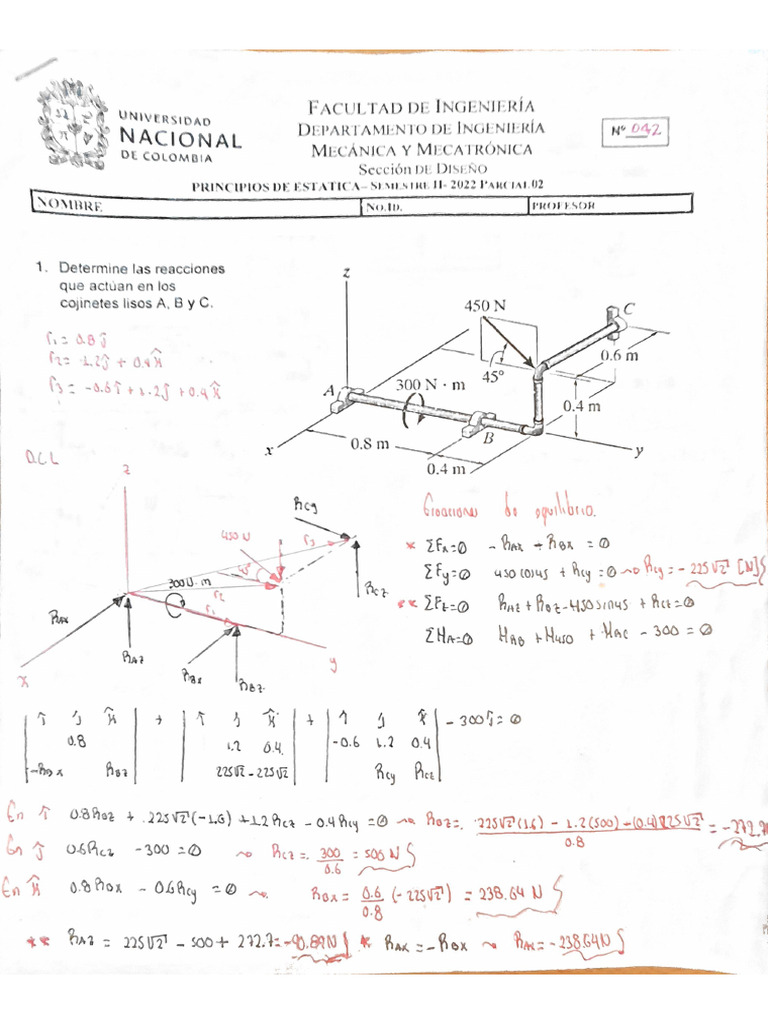 UNIVERSIDAD
NACIONAL
DE COLOMBIA
FACULTAD DE INGENIERÍA
DEPARTAMENTO DE INGENIERÍA
MECÁNICA Y MECATRÓNICA
Sección DE DISEÑO
PRINCIPIOS DE ESTATICA– SEMESTRE II- 2022 PARCIAL 02
Nº 042
NOMBRE No.ID. PROFESOR
1. Determine las reacciones
que actúan en los
cojinetes lisos A, B y C.
r₁ = 0.8ĵ
r₂ = 1.2ĵ + 0.4k̂
r₃ = -0.6î + 1.2ĵ + 0.4k̂
z
450 N
C
0.6 m
45°
A
300 N · m
0.4 m
0.8 m
B
x
0.4 m
y
D.C.L
z
RCy
450 N
r₃
45°
300 N·m
r₂
r₁
RCz
RAx
RAz
RBx
RBz
x
y
Ecuaciones de equilibrio.
* ΣFx=0 -RAx - RBx = 0
ΣFy=0 450 cos45 + RCy = 0 → RCy = -225√2 [N]
** ΣFz=0 RAz + RBz - 450 sin45 + RCz = 0
ΣMA=0 MAB + M450 + MAC - 300 = 0
| î ĵ k̂ | + | î ĵ k̂ | + | î ĵ k̂ | - 300ĵ = 0
0.8 1.2 0.4 -0.6 1.2 0.4
-RBx RBz 225√2 -225√2 RCy RCz
En î 0.8RBz + 225√2 (-1.6) + 1.2RCz - 0.4RCy = 0 → RBz = 225√2 (1.6) - 1.2(500) - (0.4)225√2 / 0.8 = -272.7
En ĵ 0.6RCz - 300 = 0 → RCz = 300/0.6 = 500 N
En k̂ 0.8RBx - 0.6RCy = 0 → RBx = 0.6/0.8 (-225√2) = 238.64 N
** RAz = 225√2 - 500 + 272.7 = -90.89N * RAx = -RBx → RAx = -238.64N